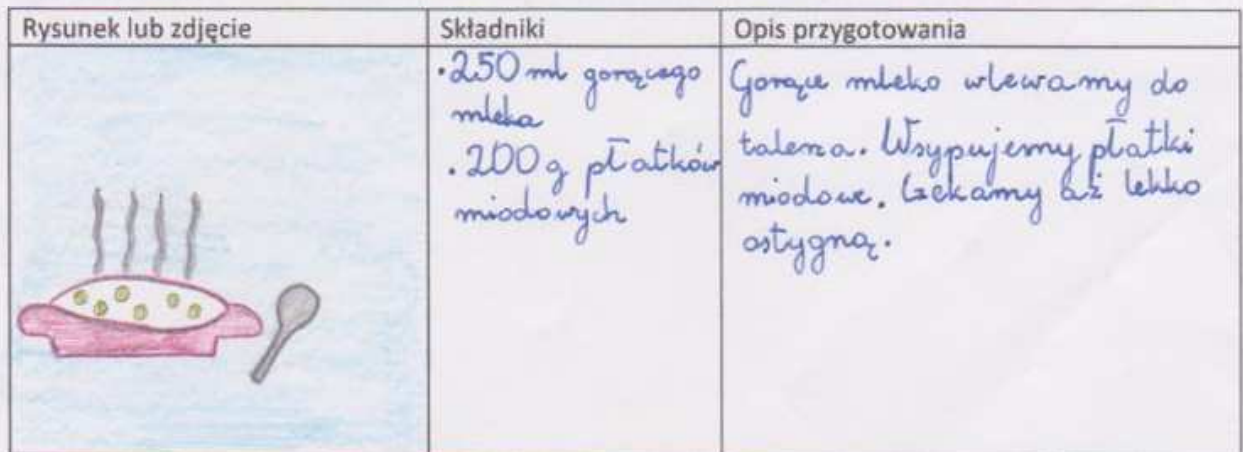 Rysunek lub zdjęcie
Składniki
Opis przygotowania
·250 ml gorącego
mleka
·200 g płatków
miodowych
Gorące mleko wlewamy do
talerza. Wsypujemy płatki
miodowe. Czekamy aż lekko
ostygną.